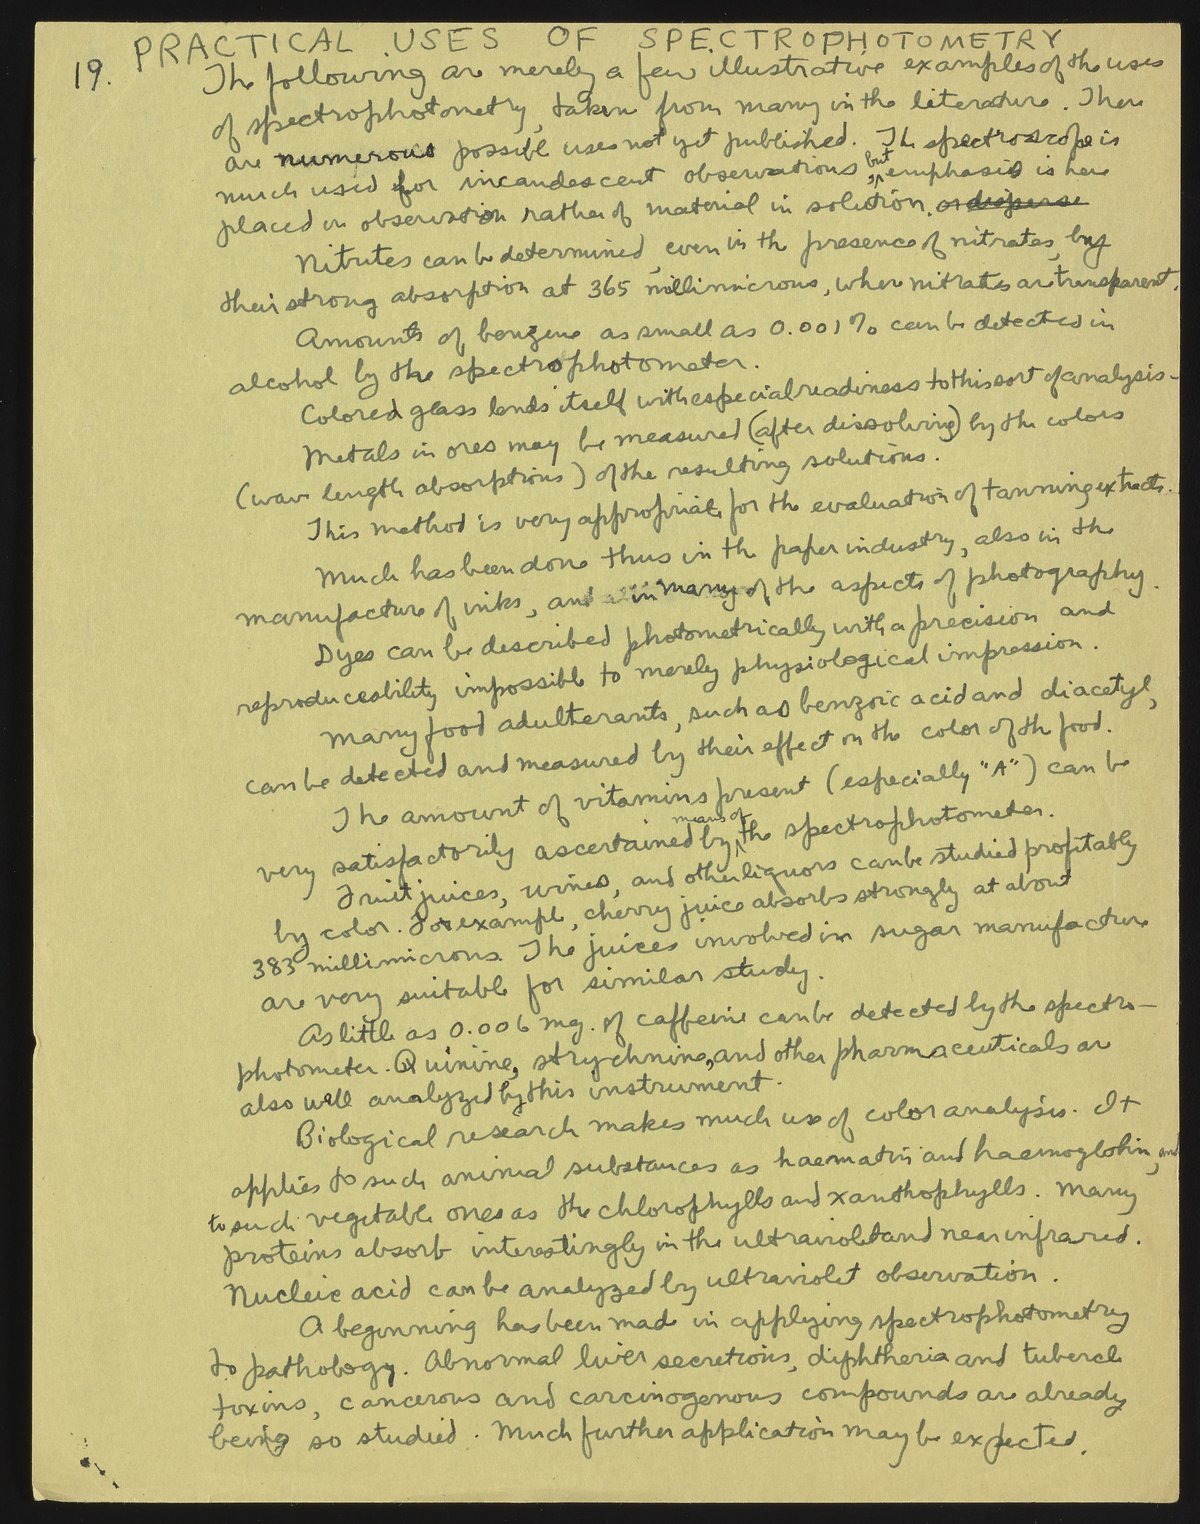 PRACTICAL USES OF SPECTROPHOTOMETRY
19. The following are merely a few illustrative examples of the uses
of spectrophotometry, taken from many in the literature. There
are numerous possible uses not yet published. The spectroscope is
much used for incandescent observations but emphasis is here
placed on observation rather of material in solution. or disperse
Nitrites can be determined, even in the presence of nitrates, by
their strong absorption at 365 millimicrons, where nitrates are transparent.
Amounts of benzene as small as 0.001% can be detected in
alcohol by the spectrophotometer.
Colored glass lends itself with especial readiness to this sort of analysis.
Metals in ores may be measured (after dissolving) by the colors
(wave length absorptions) of the resulting solutions.
This method is very appropriate for the evaluation of tanning extracts.
Much has been done thus in the paper industry, also in the
manufacture of inks, and in many of the aspects of photography.
Dyes can be described photometrically with a precision and
reproducebility impossible to merely physiological impression.
Many food adulterants, such as benzoic acid and diacetyl,
can be detected and measured by their effect on the color of the food.
The amount of vitamins present (especially "A") can be
very satisfactorily ascertained by means of the spectrophotometer.
Fruit juices, wines, and other liquors can be studied profitably
by color. For example, cherry juice absorbs strongly at about
383 millimicrons. The juices involved in sugar manufacture
are very suitable for similar study.
As little as 0.006 mg. of caffeine can be detected by the spectro-
photometer. Quinine, strychnine, and other pharmaceuticals are
also well analyzed by this instrument.
Biological research makes much use of color analysis. It
applies to such animal substances as haematin and haemoglobin, and
to such vegetable ones as the chlorophylls and xanthophylls. Many
proteins absorb interestingly in the ultraviolet and near infrared.
Nucleic acid can be analyzed by ultraviolet observation.
A beginning has been made in applying spectrophotometry
to pathology. Abnormal liver secretions, diphtheria and tubercle
toxins, cancerous and carcinogenous compounds are already
being so studied. Much further application may be expected.